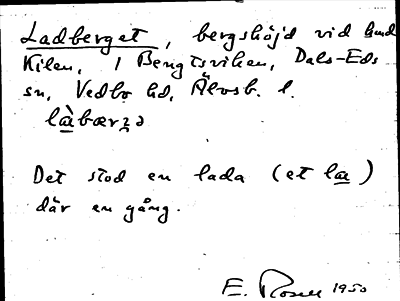 Ladberget, bergshöjd vid
Kilen, i Bengtsviken, Dals-Eds
sn, Vedbo hd, Älvsb. l.
làbærʒə
Det stod en lada (et la)
där en gång.
E. Rosell 1950